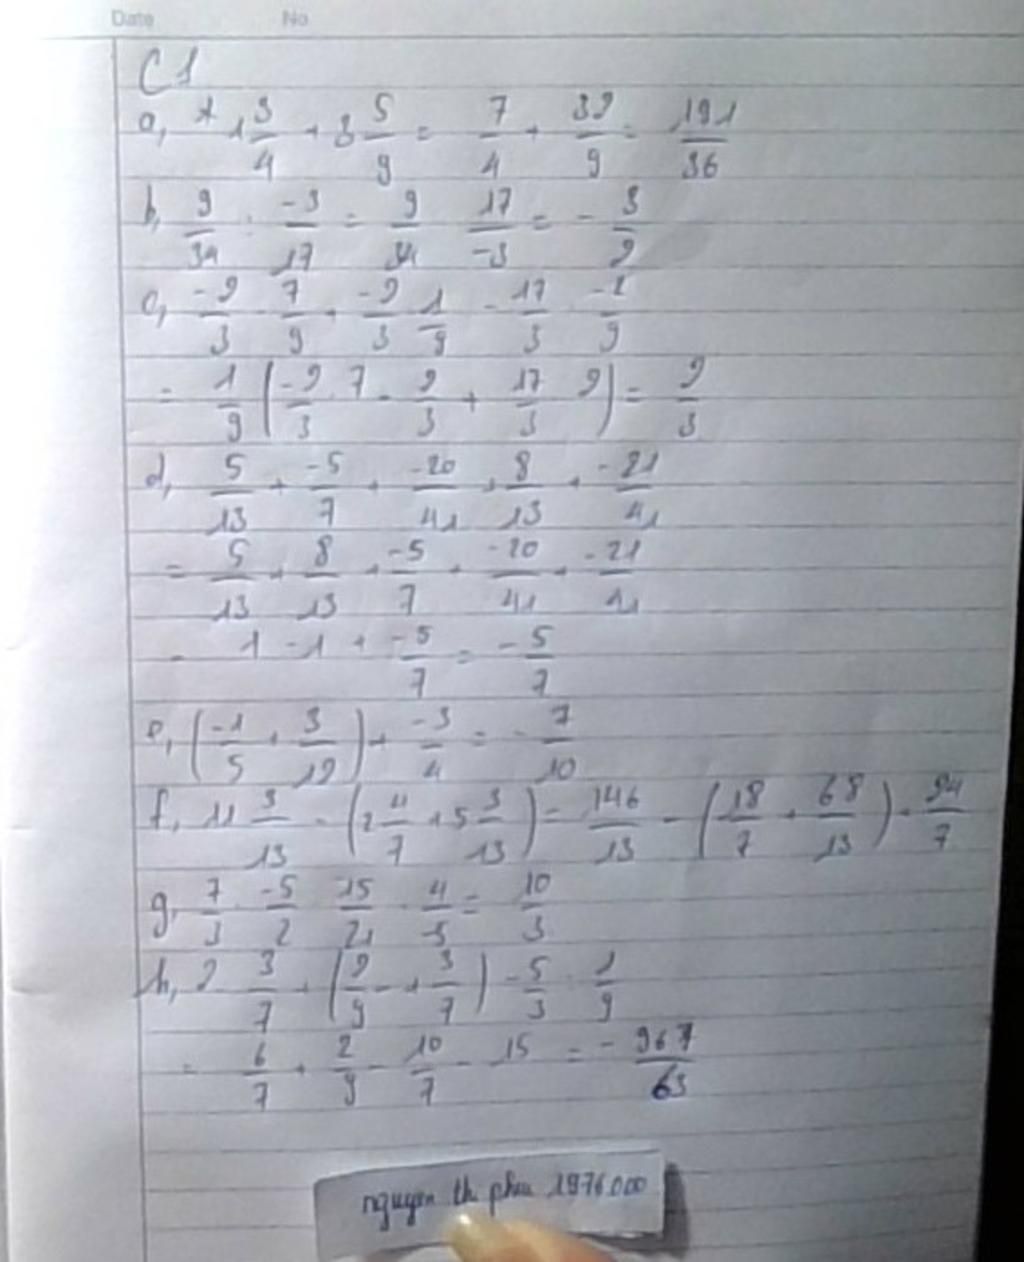 Date No
C1
a, 1 3/4 + 3 5/9 = 7/4 + 32/9 = 191/36
b, 9/34 : -3/17 = 9/34 . 17/-3 = - 3/2
c, -2/3 . 7/9 + -2/3 . 1/9 - 17/3 .
= 1/9 ( -2/3 . 7 - 2/3 + 17/3 . 2 ) = 2/3
d, 5/13 + -5/7 + -20/41 + 8/13 + -21/41
= 5/13 + 8/13 + -5/7 + -20/41 + -21/41
= 1 - 1 + -5/7 = -5/7
e, ( -1/5 + 3/12 ) + -3/4 = - 7/10
f, 11 3/13 - ( 2 4/7 + 5 3/13 ) = 146/13 - ( 18/7 + 68/13 ) = 24/7
g, 7/3 . -5/2 . 15/21 . 4/-5 = 10/3
h, 2 . 3/7 + ( 2/9 - 1 3/7 ) - 5/3 : 1/9
= 6/7 + 2/9 - 10/7 - 15 = - 967/63
nguyen th phu 1976.000